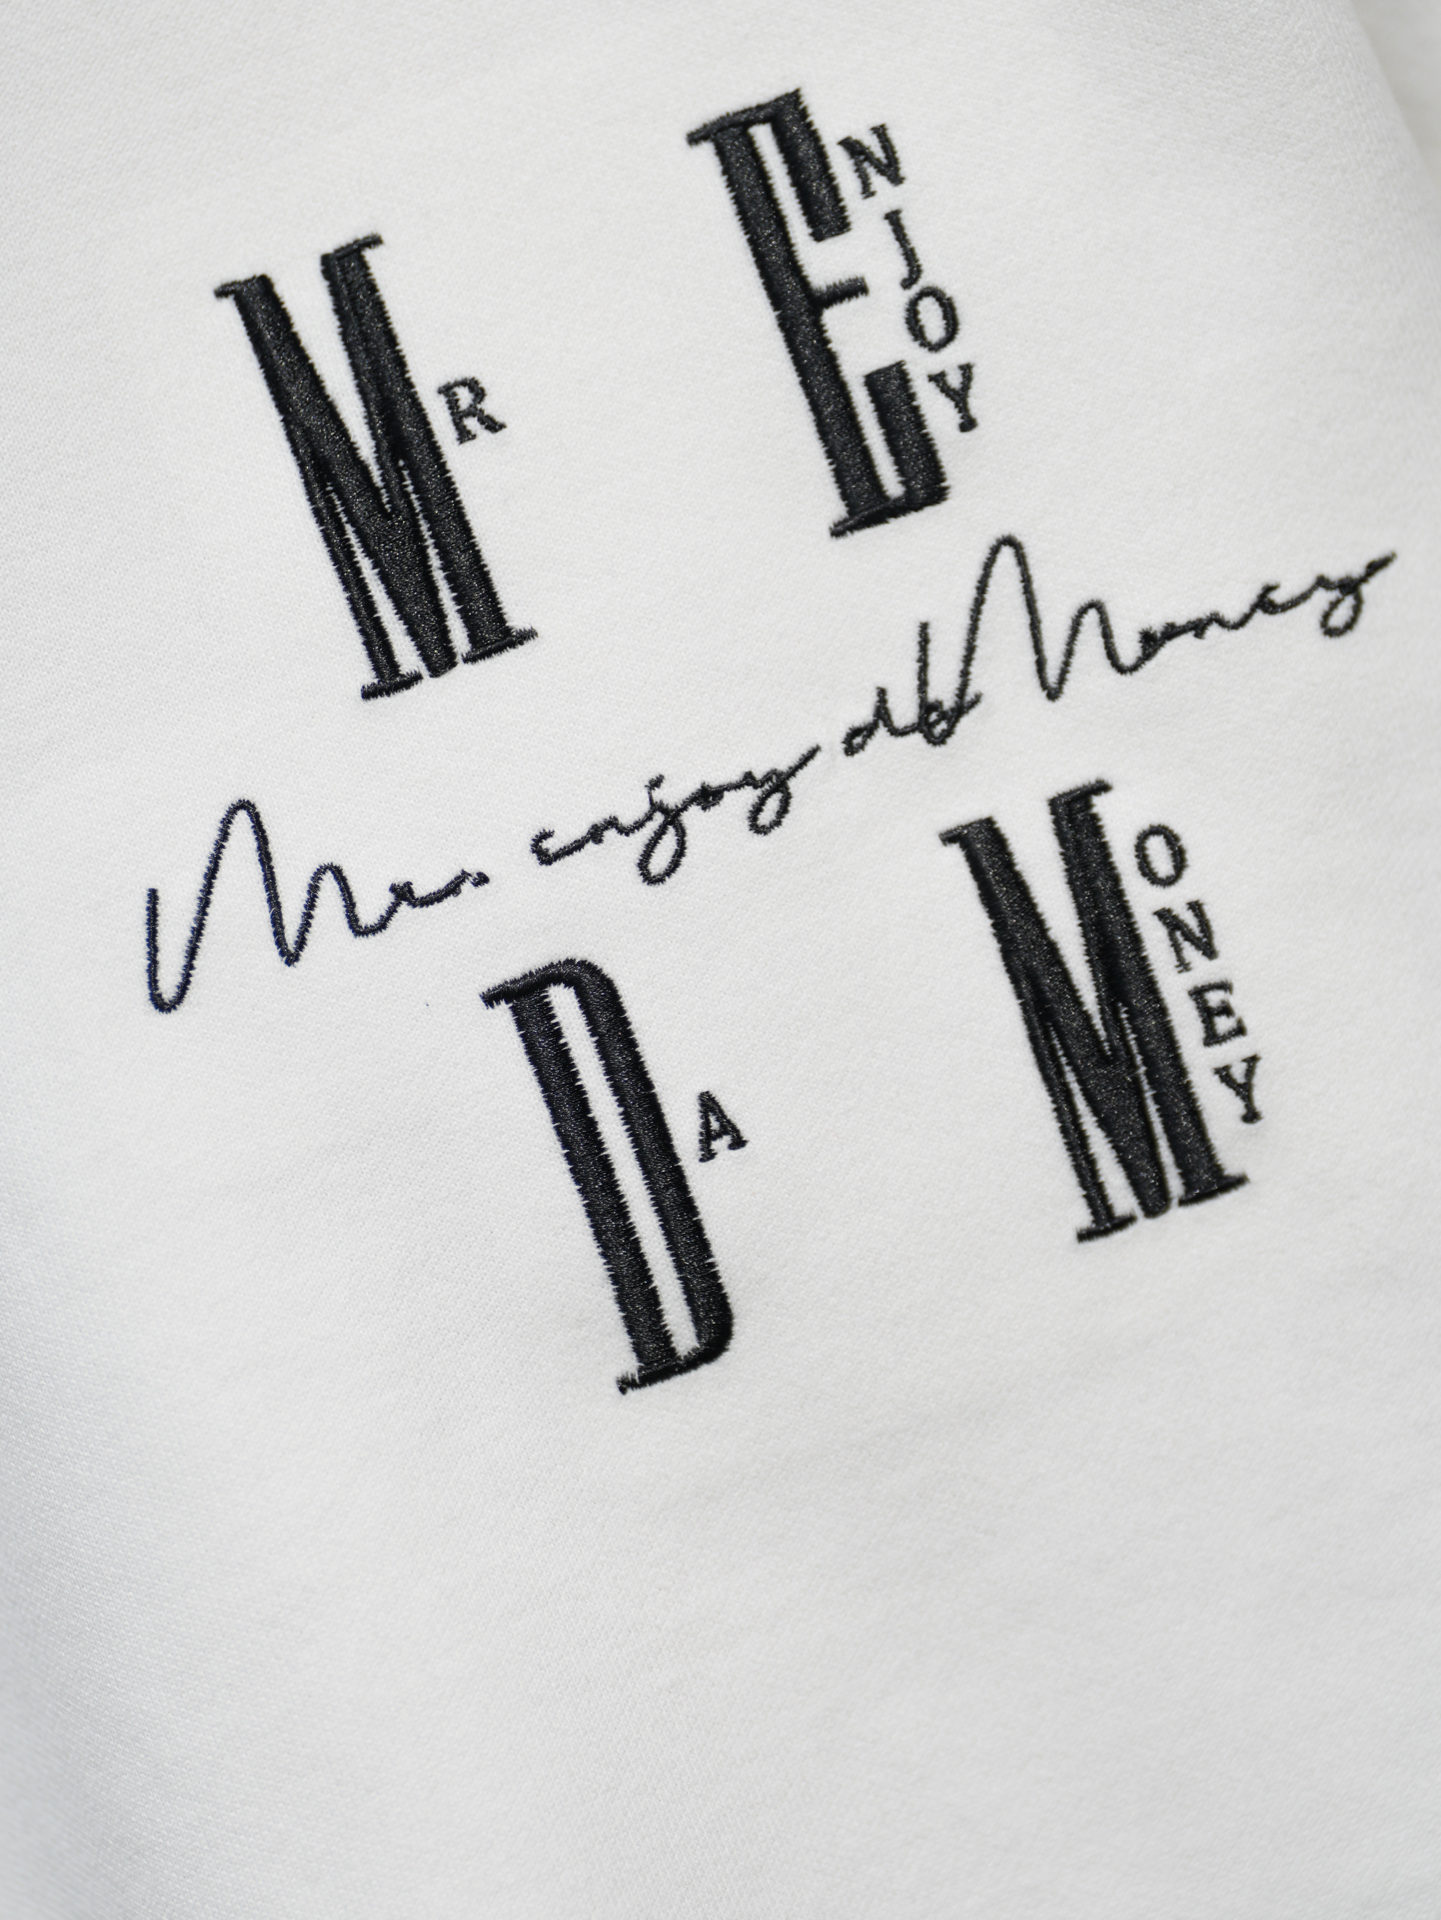 MR ENJOY
Mr. enjoy da Money
DA MONEY